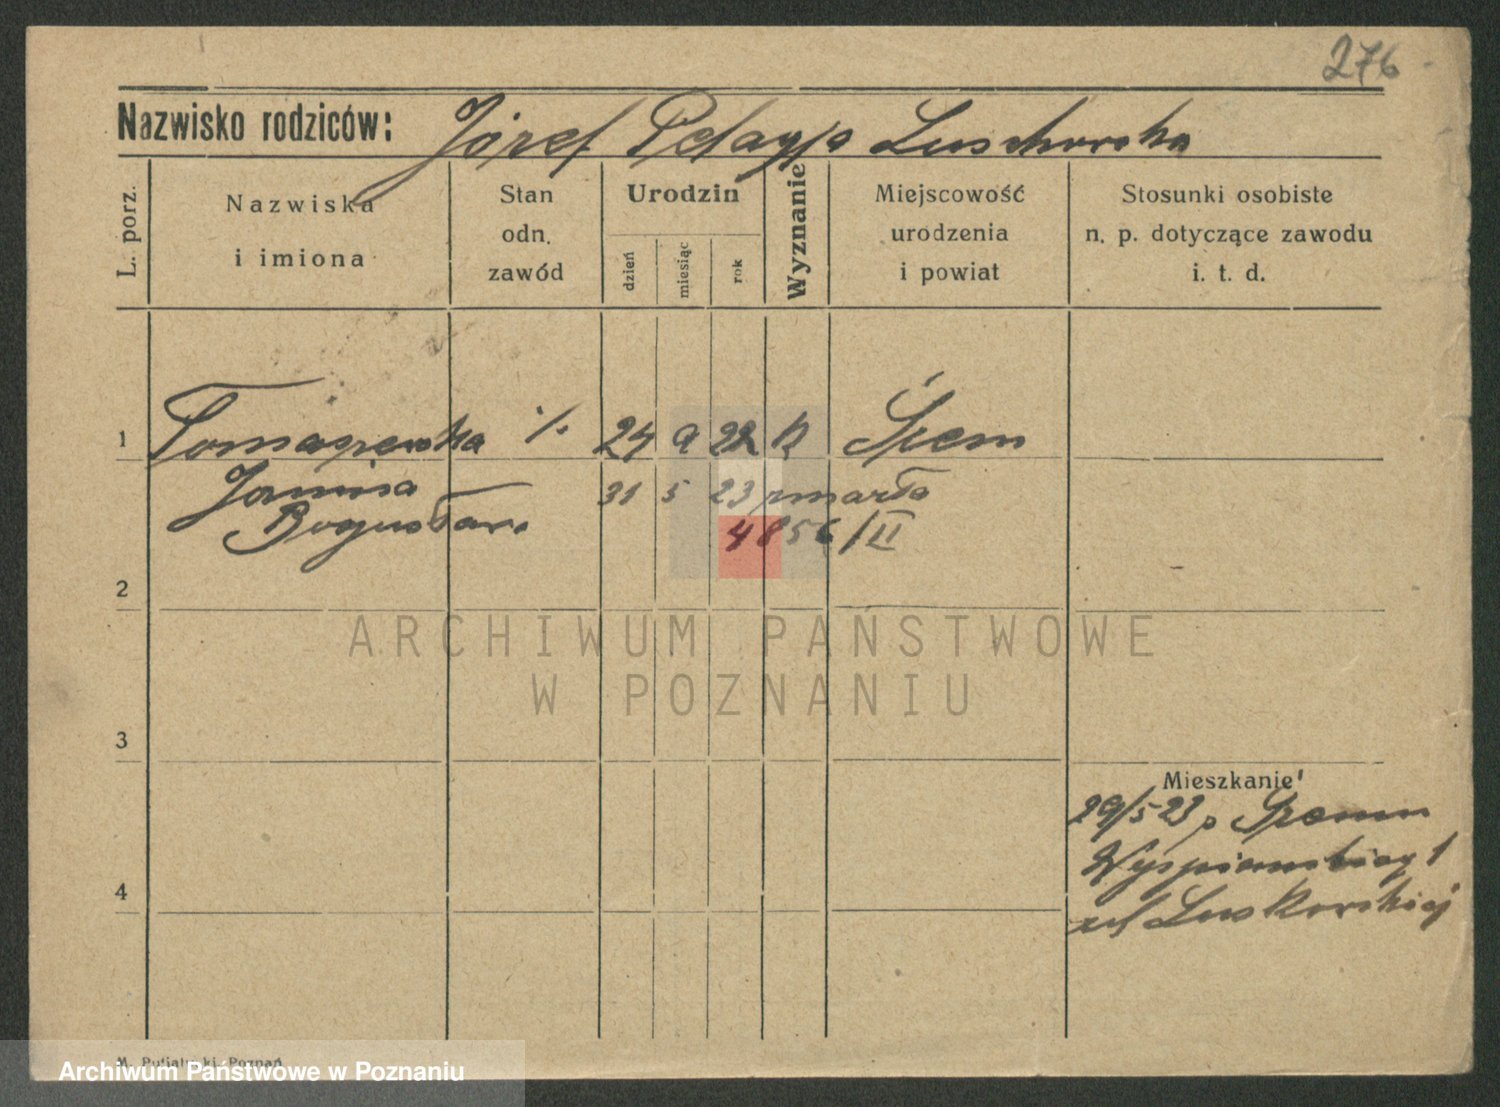 276
Nazwisko rodziców: Józef Pelagja Luschorska
L. porz.
Nazwiska
i imiona
Stan
odn.
zawód
Urodzin
dzień
miesiąc
rok
Wyznanie
Miejscowość
urodzenia
i powiat
Stosunki osobiste
n. p. dotyczące zawodu
i. t. d.
1 Tomaszewska ·/. 24 9 22 K Śrem
Janina 31 5 23 zmarła
Bogusława 4856/II
2
ARCHIWUM PAŃSTWOWE
W POZNANIU
3
Mieszkanie
29/5 23 Śremu
Wyspiańskieg 1
Luskorskiej
4
M. Putiatycki, Poznań
Archiwum Państwowe w Poznaniu